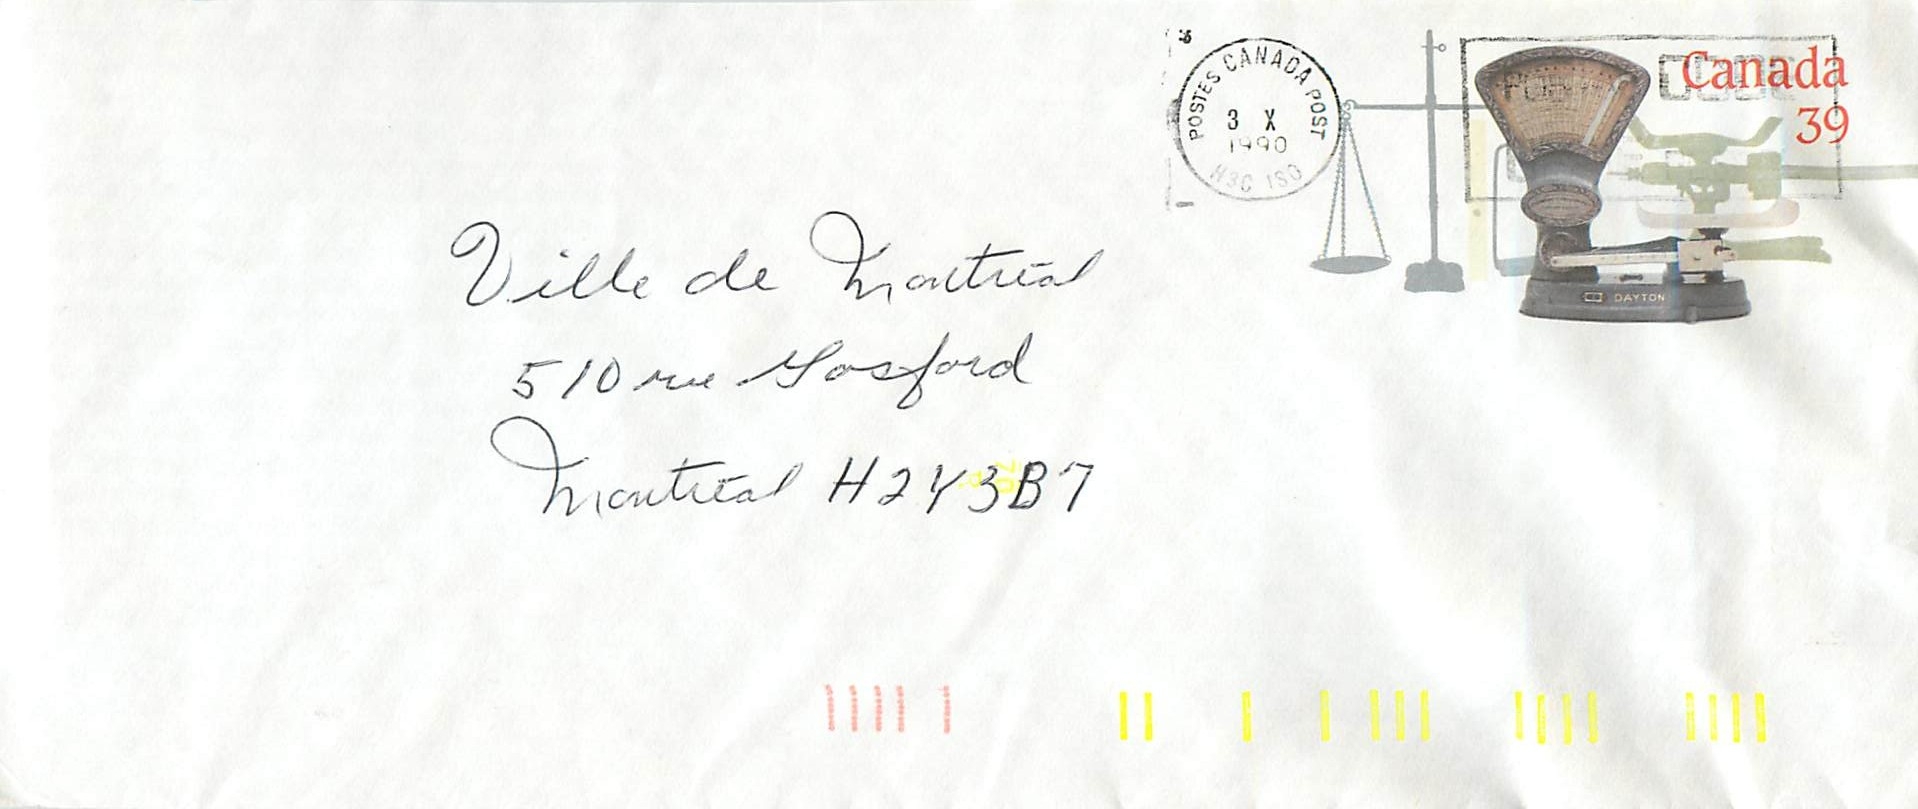 POSTES CANADA POST
3 X
1990
H3C 1S0
Canada
39
DAYTON
Ville de Montréal
510 rue Gosford
Montréal H2Y3B7